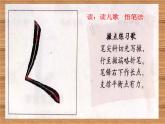 读:读儿歌 悟笔法
撇点练习歌
笔尖斜切先写撇,
行至撇端略折笔,
笔锋右下作长点,
支撑平衡点有力。